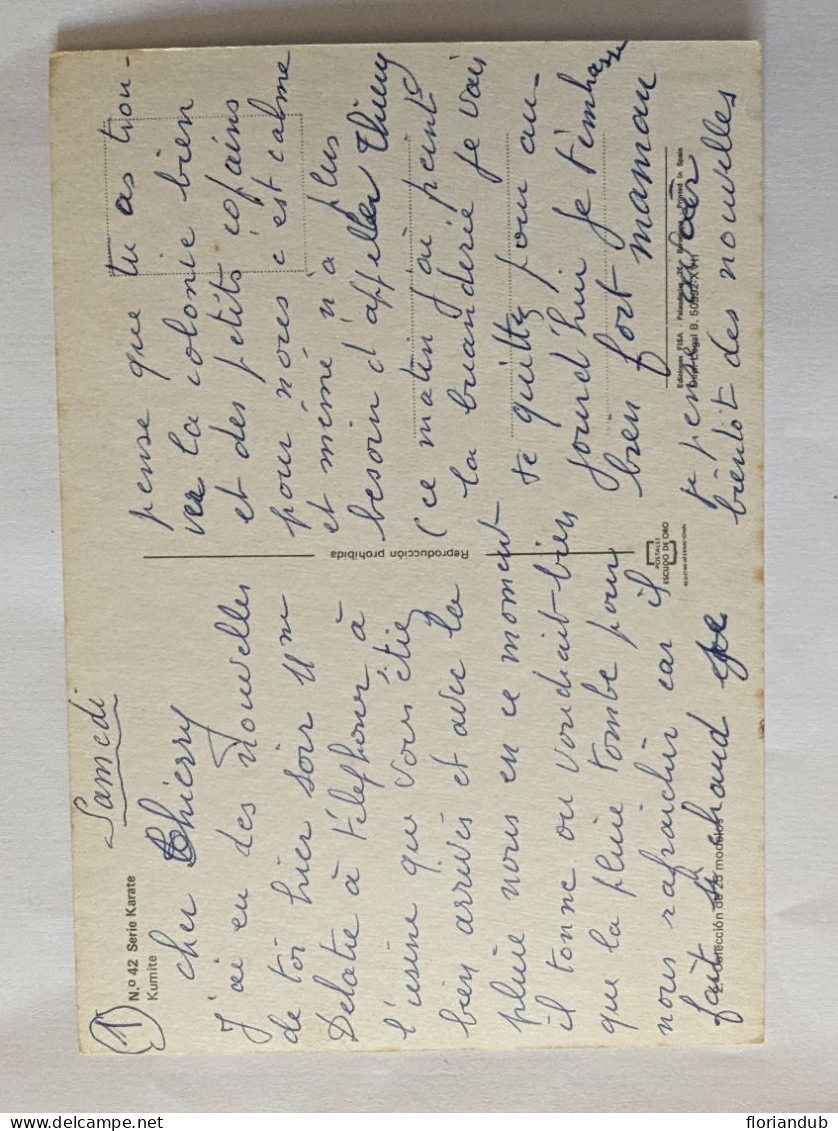 1
N.º 42 Serie Karate
Kumite
Samedi
cher Thierry
J'ai eu des Nouvelles
de toi hier soir Mme
Delatre à téléphoner à
l'usine que vous étiez
bien arrivés et avec la
pluie nous en ce moment
il tonne on voudrait bien
que la pluie tombe pour
nous rafraichir car il
fait si chaud je
2.ª selección de 25 modelos
Reproducción prohibida
POSTALES
ESCUDO DE ORO
pense que tu as trou-
ver la colonie bien
et des petits copains
pour nous c'est calme
et même n'a plus
besoin d'appeller Thierry
Ce matin j'ai peint
la buanderie je vais
te quittez pour au-
jourd'hui je t'embrasse
bien fort maman
Ediciones FISA Printed in Spain
Depósito Legal B. XVII
je pense avoir
bientôt des nouvelles
floriandub